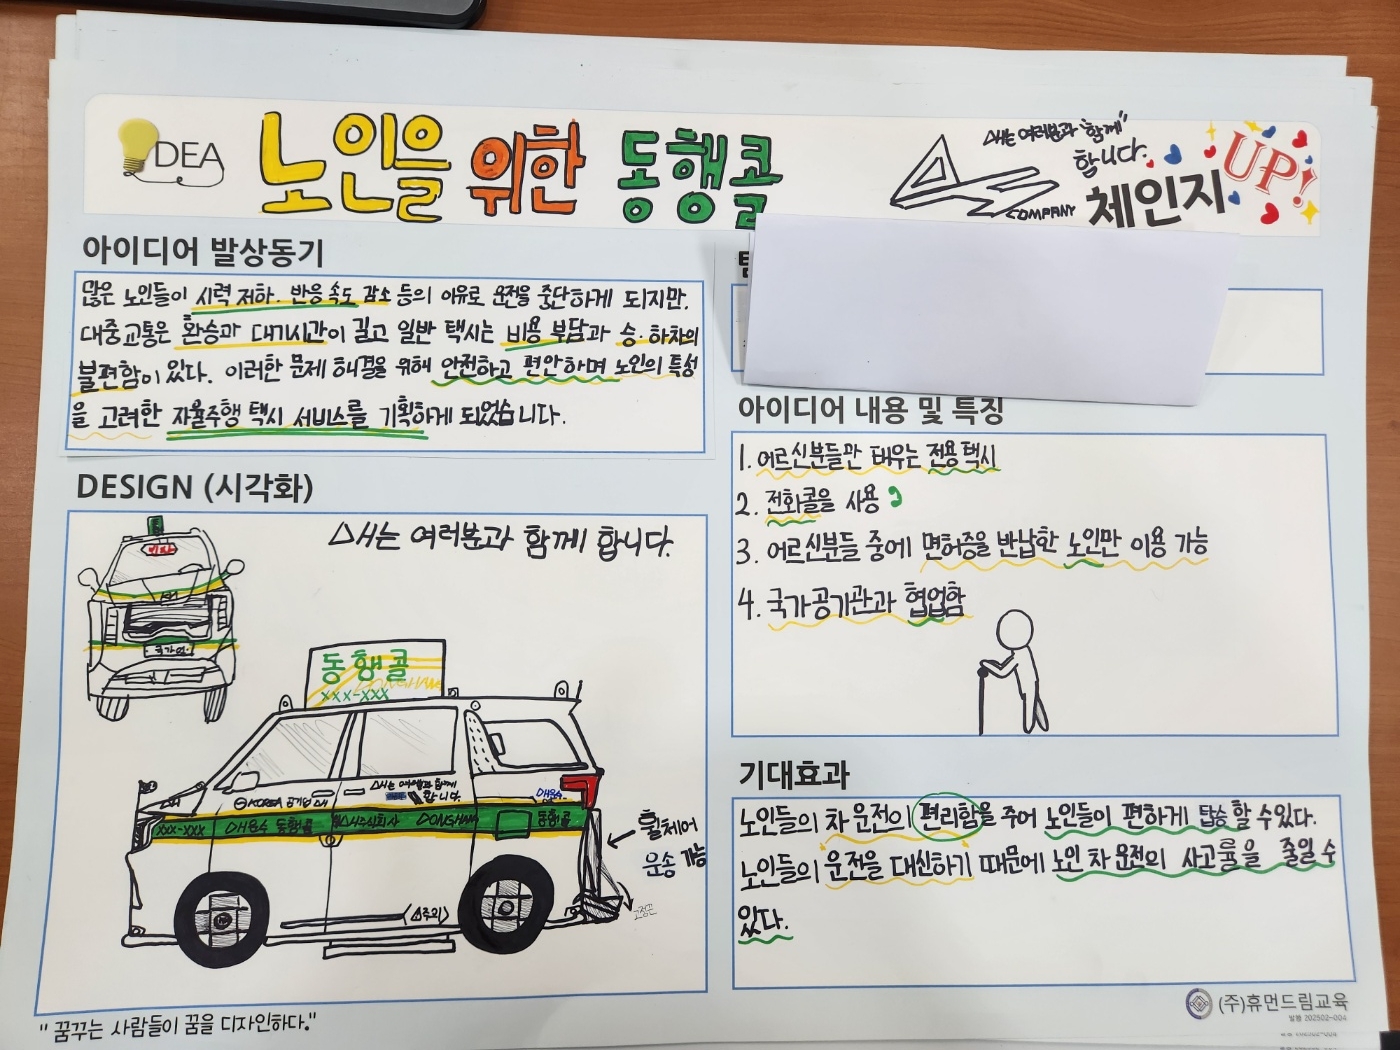 IDEA
노인을 위한 동행콜
△H는 여러분과 "함께"
합니다.
COMPANY
체인지 UP!
아이디어 발상동기
많은 노인들이 시력 저하, 반응 속도 감소 등의 이유로 운전을 중단하게 되지만,
대중교통은 환승과 대기시간이 길고 일반 택시는 비용 부담과 승·하차의
불편함이 있다. 이러한 문제 해결을 위해 안전하고 편안하며 노인의 특성
을 고려한 자율주행 택시 서비스를 기획하게 되었습니다.
DESIGN (시각화)
△H는 여러분과 함께 합니다.
동행콜
DONGHANG
XXX-XXX
KOREA 공기업
합니다.
XXX-XXX
동행콜
△H주식회사
DONGHANG
동행콜
휠체어
운송 가능
<주의>
고정끈
"꿈꾸는 사람들이 꿈을 디자인하다."
아이디어 내용 및 특징
1. 어르신분들만 태우는 전용택시
2. 전화콜을 사용
3. 어르신분들 중에 면허증을 반납한 노인만 이용 가능
4. 국가공기관과 협업함
기대효과
노인들의 차 운전의 편리함을 주어 노인들이 편하게 탑승 할 수 있다.
노인들의 운전을 대신하기 때문에 노인 차 운전의 사고률을 줄일 수
있다.
(주)휴먼드림교육
발행 202502-004